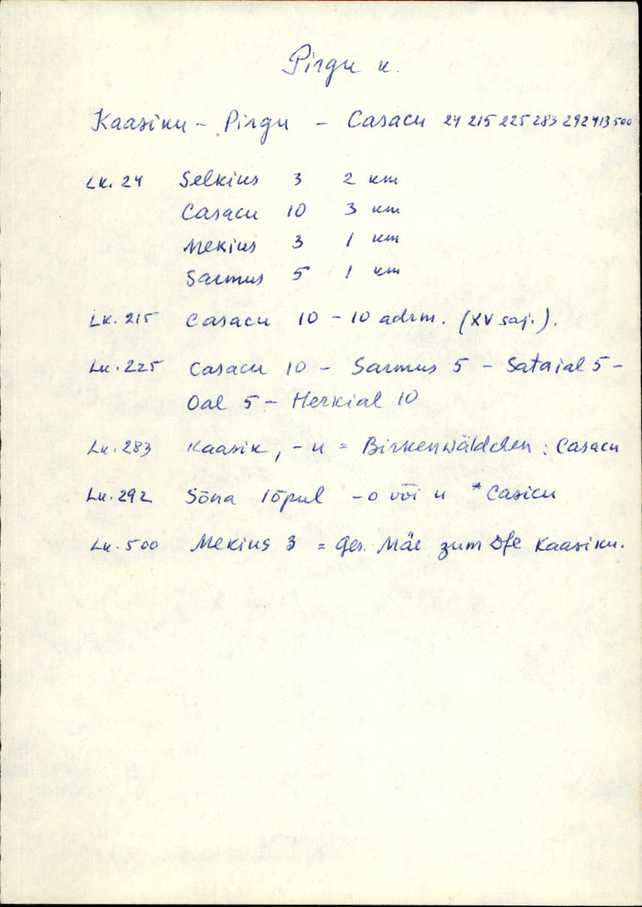 Pirgu k.
Kaasiku - Pirgu - Casacu 24 215 225 283 292 413 500
Lk. 24 Selkius 3 2 km
Casacu 10 3 km
Mekius 3 1 km
Sarmus 5 1 km
Lk. 215 Casacu 10 - 10 adrm. (XV saj.).
Lk. 225 Casacu 10 - Sarmus 5 - Sataial 5 -
Oal 5 - Herkial 10
Lk. 283 Kaasik, -u = Birkenwäldchen : Casacu
Lk. 292 Sõna lõpul -o või u *Casicu
Lk. 500 Mekius 3 = Ges. Mäe zum Dfe Kaasiku.